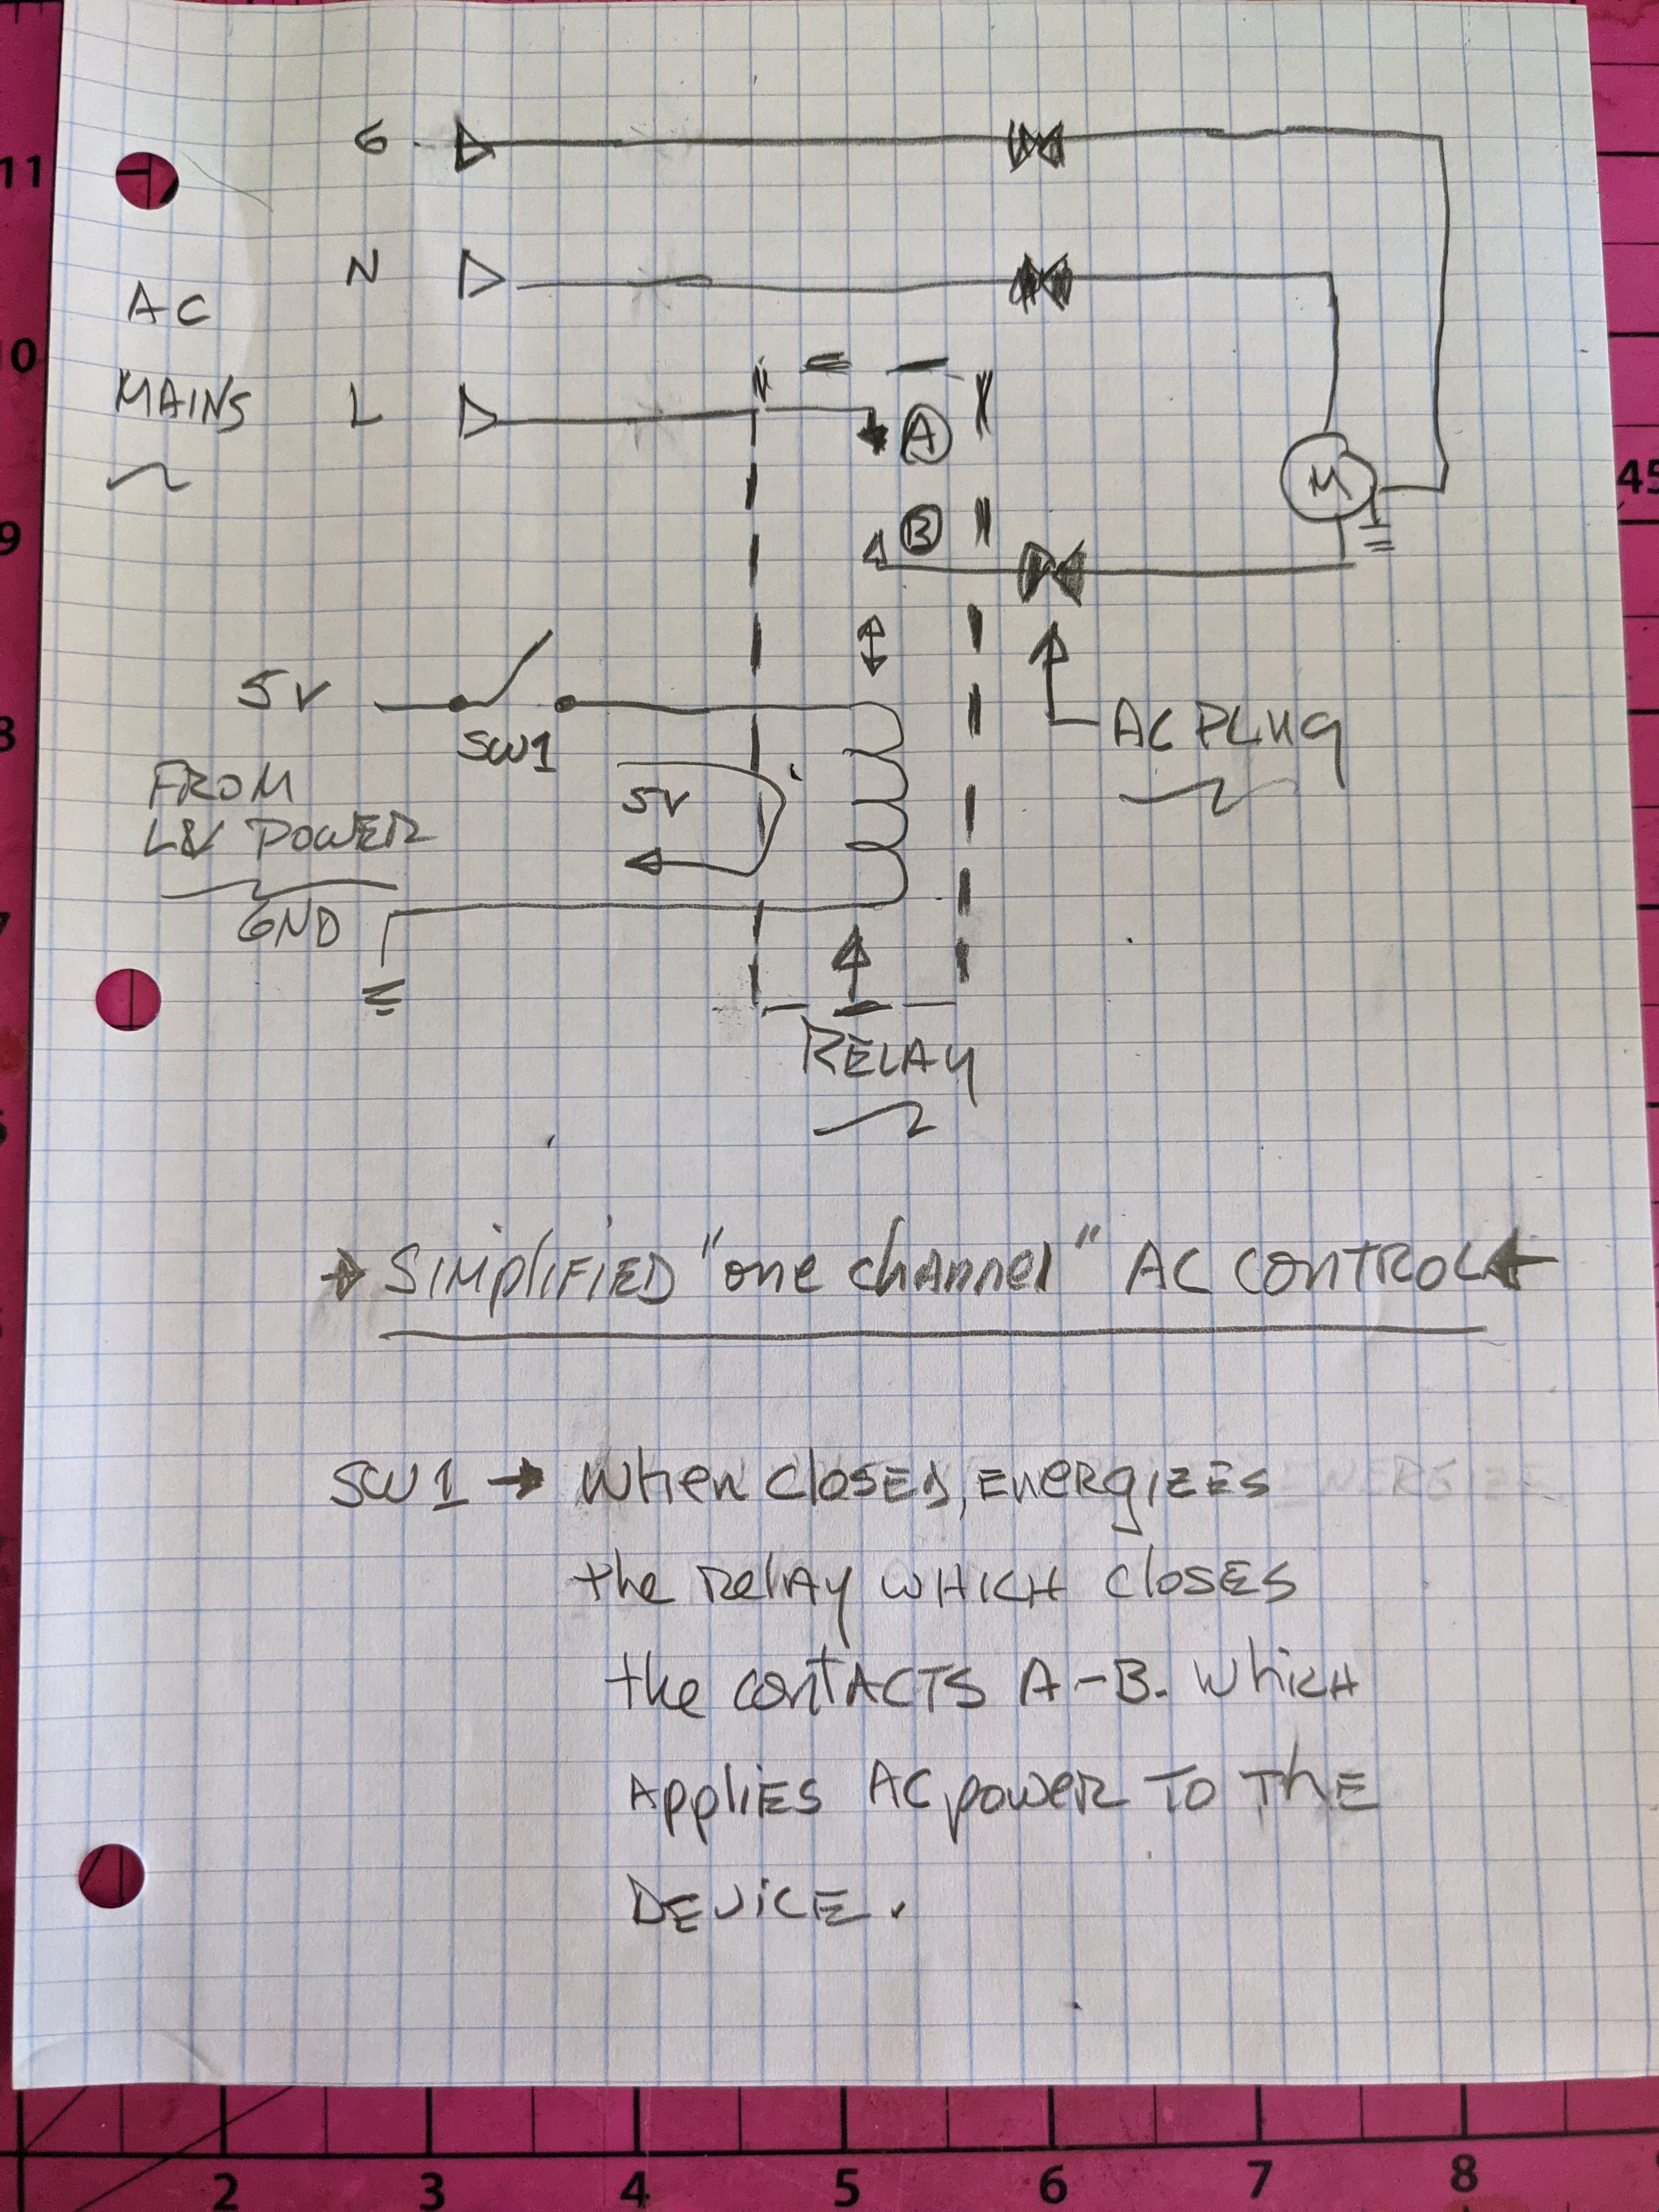 G
N
AC
MAINS
L
A
B
5V
SW1
AC PLUG
FROM
LV POWER
5V
GND
RELAY
SIMPLIFIED "one channel" AC CONTROL
SW1 → When closed, energizes
the relay WHICH closes
the contACTS A-B. Which
Applies AC power TO THE
DEVICE.
M
ENERGIZE
11
10
9
8
7
45
2
3
4
5
6
7
8